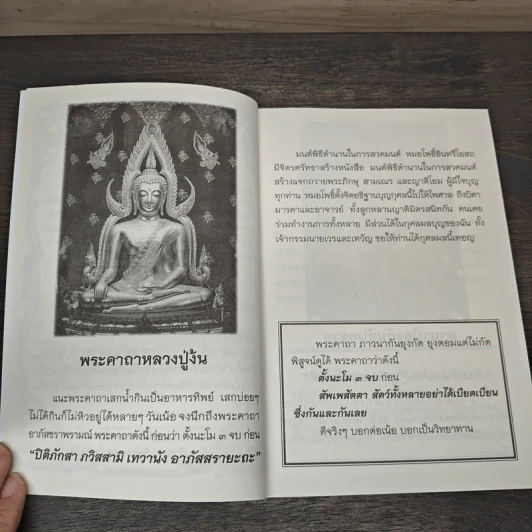 พระคาถาหลวงปู่ง้น
แนะพระคาถาเสกน้ำกินเป็นอาหารทิพย์ เสกบ่อยๆ
ไม่ได้กินก็ไม่หิวอยู่ได้หลายๆ วันเน้อ จงนึกถึงพระคาถา
อาภัสชราพราหมณ์ พระคาถาดังนี้ ก่อนว่า ตั้งนะโม ๓ จบ ก่อน
“ปิติภักสา ภวิสสามิ เทวานัง อาภัสสรายะถะ”
มนต์พิธีตำนานในการสวดมนต์ หมอโพธิ์อินทรีโอสถ
มีจิตรศรัทธาสร้างหนังสือ มนต์พิธีตำนานในการสวดมนต์
สร้างแจกถวายพระภิกษุ สามเณร และญาติโยม ผู้มีใจบุญ
ทุกท่าน หมอโพธิ์ตั้งจิตอธิฐานบุญกุศลนี้ไปให้ไพศาล ถึงบิดา
มารดาและอาจารย์ ทั้งลูกหลานญาติมิตรสนิทกัน คนเคย
ร่วมทำงานการทั้งหลาย มีส่วนได้ในกุศลผลบุญของฉัน ทั้ง
เจ้ากรรมนายเวรและเทวัญ ขอให้ท่านได้กุศลผลนี้เทอญ
พระคาถา ภาวนากันยุงกัด ยุงตอมแต่ไม่กัด
พิสูจน์ดูได้ พระคาถาว่าดังนี้
ตั้งนะโม ๓ จบ ก่อน
สัพเพสัตตา สัตว์ทั้งหลายอย่าได้เบียดเบียน
ซึ่งกันและกันเลย
ดีจริงๆ บอกต่อเน้อ บอกเป็นวิทยาทาน